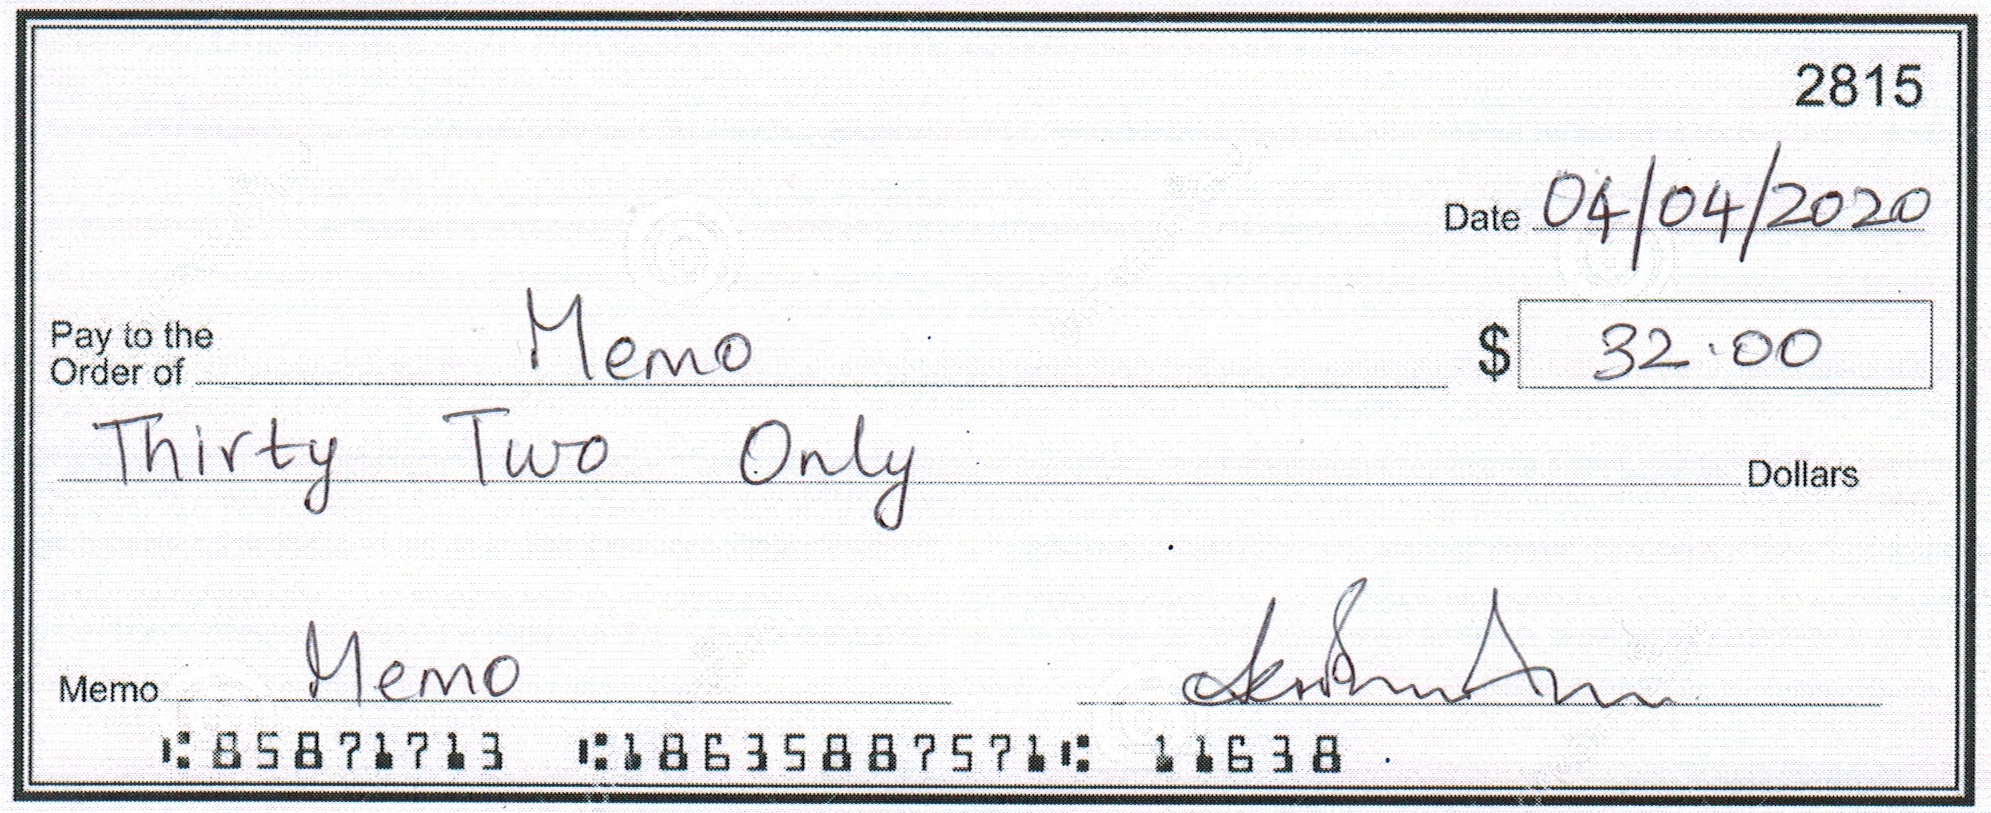 2815
Date 04/04/2020
Pay to the
Order of Memo $ 32.00
Thirty Two Only Dollars
Memo Memo
⑆85871713 ⑆18635887571⑆ 11638